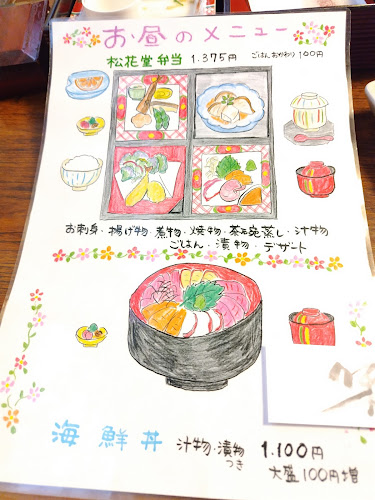 お昼のメニュー
松花堂弁当 1.375円 ごはんおかわり 100円
お刺身・揚げ物・煮物・焼物・茶碗蒸し・汁物
ごはん・漬物・デザート
海鮮丼 汁物・漬物 1.100円
つき 大盛100円増